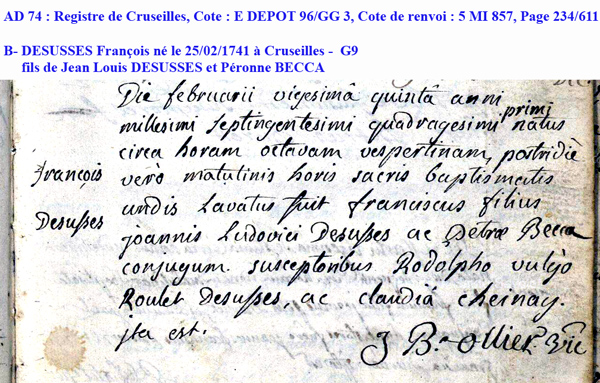 AD 74 : Registre de Cruseilles, Cote : E DEPOT 96/GG 3, Cote de renvoi : 5 MI 857, Page 234/611
B- DESUSSES François né le 25/02/1741 à Cruseilles - G9
fils de Jean Louis DESUSSES et Péronne BECCA
Die februarii vigesimâ quintâ anni
millesimi septingentesimi quadragesimi primi natus
circa horam octavam vespertinam, postridiè
françois
verò matutinis horis sacris baptismatis
undis Lavatus fuit franciscus filius
Desusses
joannis Ludovici Desusses ac Petræ Becca
conjugum. susceptoribus Rodolpho vulgò
Roulet Desusses, ac claudiâ cheinay.
jta est.
J B. ollier vic